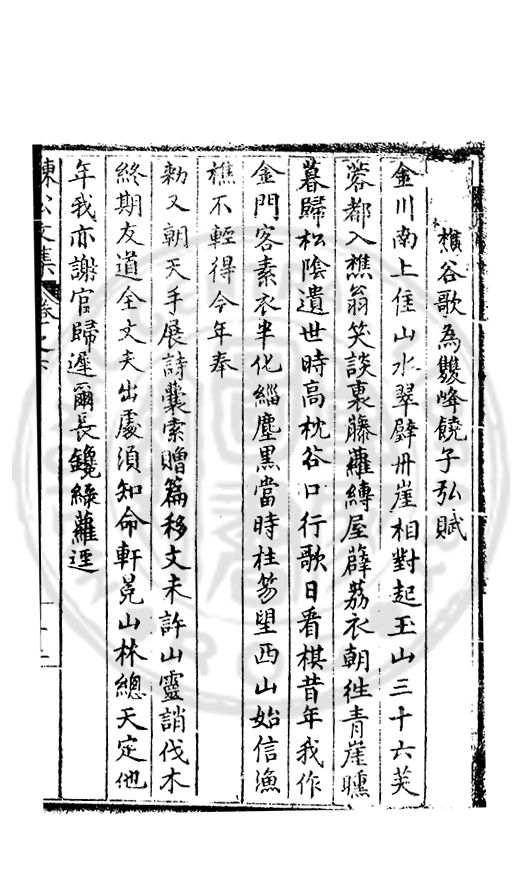 樵谷歌為雙峰饒子弘賦
金川南上佳山水翠壁丹崖相對起玉山三十六芙
蓉都入樵翁笑談裏藤蘿縛屋薜荔衣朝往青崖曛
暮歸松陰遺世時高枕谷口行歌日看棋昔年我作
金門客素衣半化緇塵黑當時拄笏望西山始信漁
樵不輕得今年奉
勑又朝天手展詩囊索贈篇移文未許山靈誚伐木
終期友道全丈夫出處須知命軒冕山林總天定他
年我亦謝官歸遲爾長鑱綠蘿逕
陳公文集
卷之六